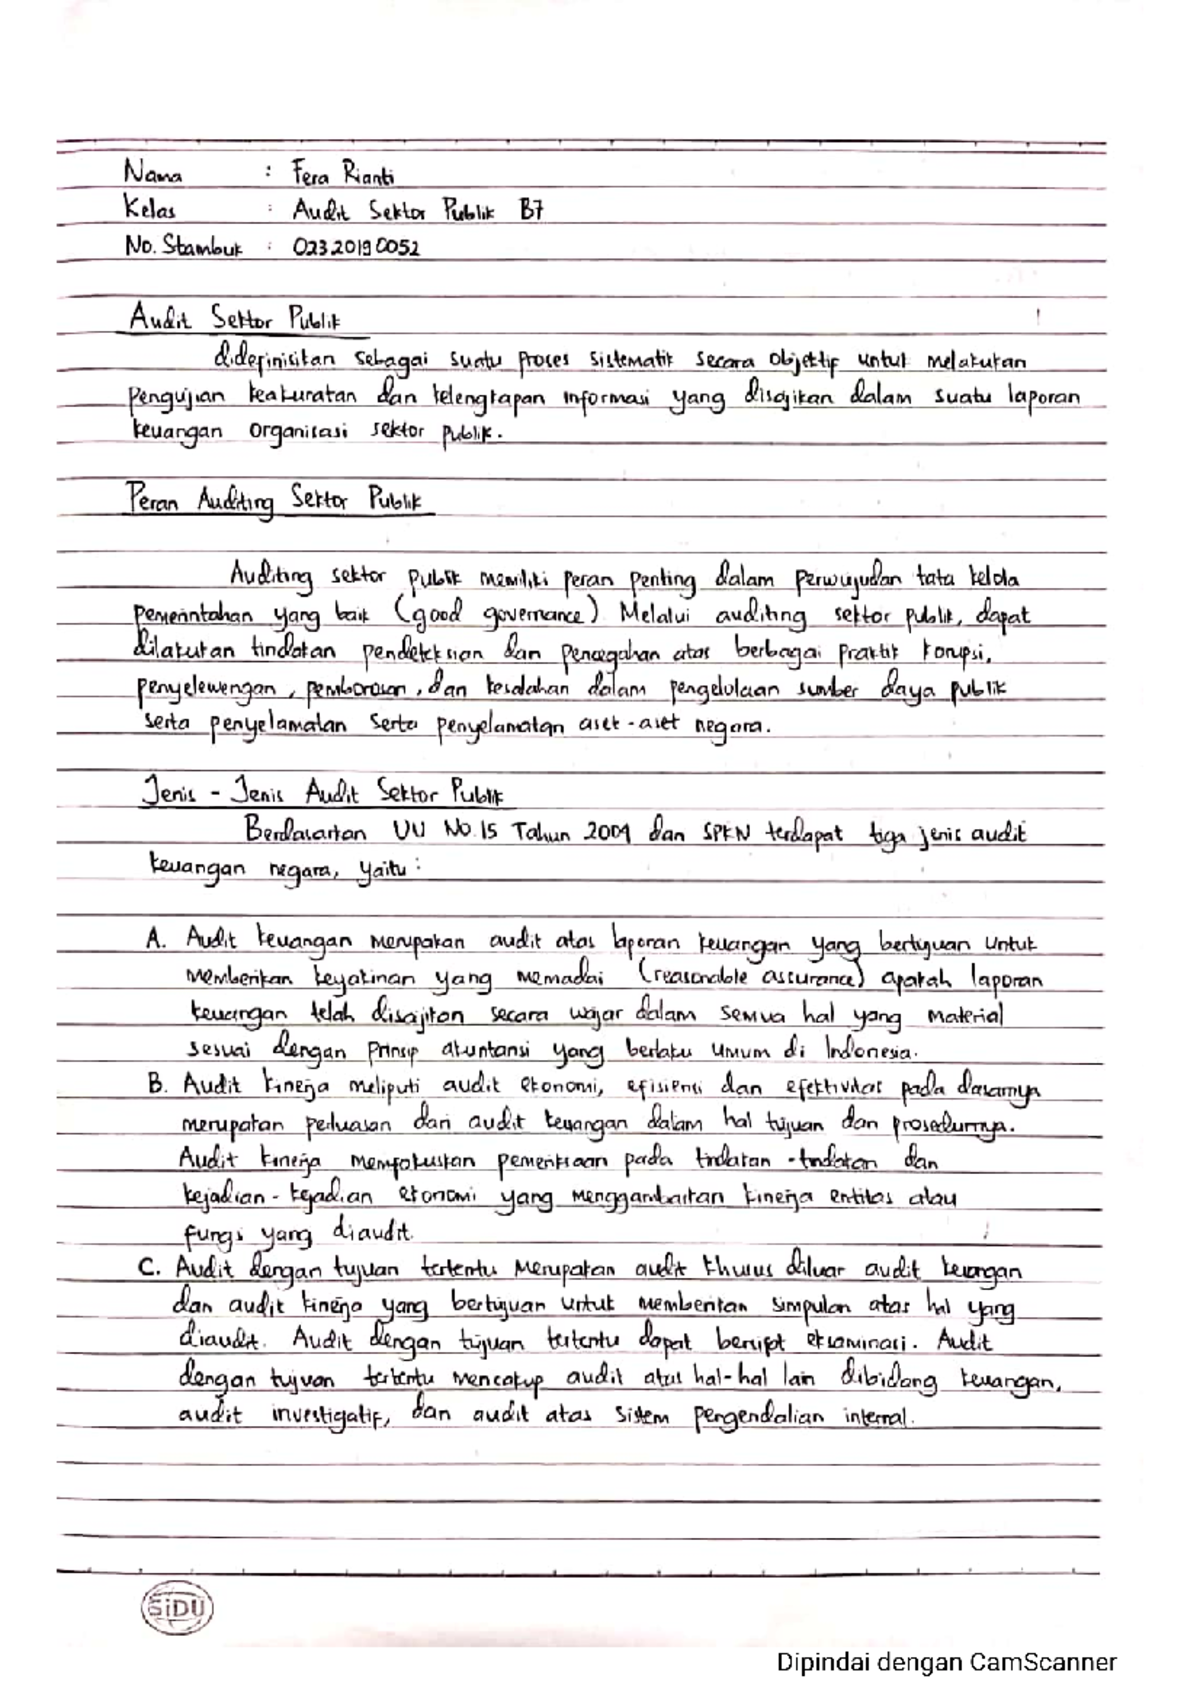 Nama : Fera Rianti
Kelas : Audit Sektor Publik B7
No. Stambuk : 02320190052
Audit Sektor Publik
didefinisikan sebagai suatu proses sistematik secara objektif untuk melakukan
pengujian keakuratan dan kelengkapan informasi yang disajikan dalam suatu laporan
keuangan organisasi sektor publik.
Peran Auditing Sektor Publik
Auditing sektor publik memiliki peran penting dalam perwujudan tata kelola
pemerintahan yang baik (good governance). Melalui auditing sektor publik, dapat
dilakukan tindakan pendeteksian dan pencegahan atas berbagai praktik korupsi,
penyelewengan, pemborosan, dan kesalahan dalam pengelolaan sumber daya publik
serta penyelamatan serta penyelamatan aset-aset negara.
Jenis - Jenis Audit Sektor Publik
Berdasarkan UU No.15 Tahun 2004 dan SPKN terdapat tiga jenis audit
keuangan negara, yaitu :
A. Audit keuangan merupakan audit atas laporan keuangan yang bertujuan untuk
memberikan keyakinan yang memadai (reasonable assurance) apakah laporan
keuangan telah disajikan secara wajar dalam semua hal yang material
sesuai dengan prinsip akuntansi yang berlaku umum di Indonesia.
B. Audit kinerja meliputi audit ekonomi, efisiensi dan efektivitas pada dasarnya
merupakan perluasan dari audit keuangan dalam hal tujuan dan prosedurnya.
Audit kinerja memfokuskan pemeriksaan pada tindakan-tindakan dan
kejadian-kejadian ekonomi yang menggambarkan kinerja entitas atau
fungsi yang diaudit.
C. Audit dengan tujuan tertentu merupakan audit khusus diluar audit keuangan
dan audit kinerja yang bertujuan untuk memberikan simpulan atas hal yang
diaudit. Audit dengan tujuan tertentu dapat bersifat eksaminasi. Audit
dengan tujuan tertentu mencakup audit atas hal-hal lain dibidang keuangan,
audit investigatif, dan audit atas sistem pengendalian internal.
SiDU
Dipindai dengan CamScanner